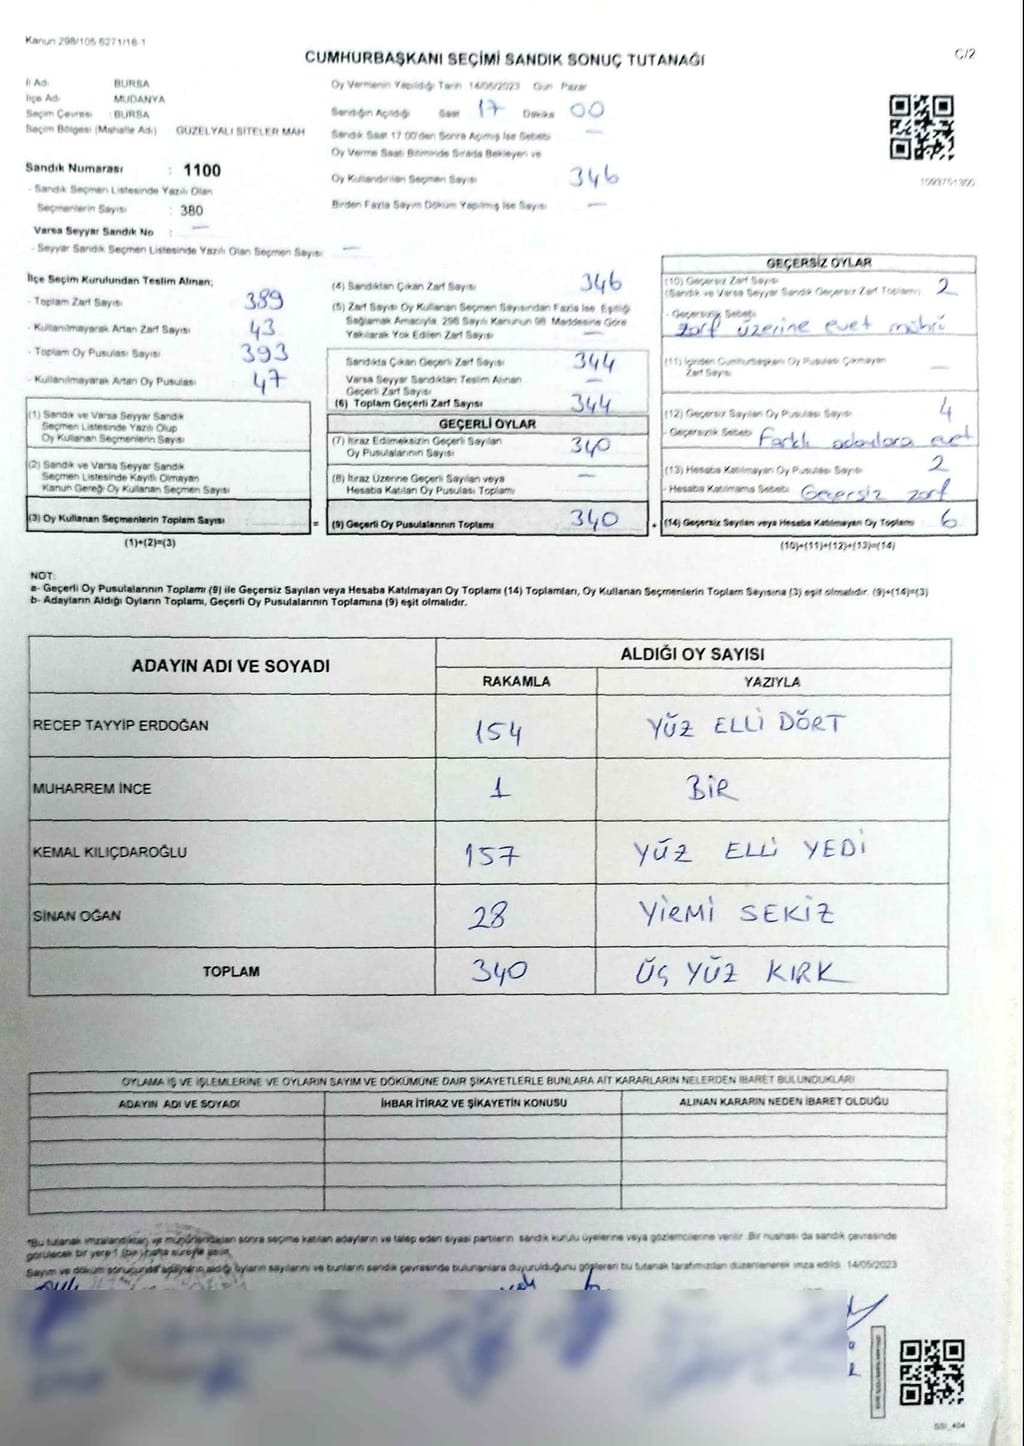 Kanun 298/105 6271/16-1
CUMHURBAŞKANI SEÇİMİ SANDIK SONUÇ TUTANAĞI
C/2
İl Adı: BURSA
İlçe Adı: MUDANYA
Seçim Çevresi : BURSA
Seçim Bölgesi (Mahalle Adı) GÜZELYALI SİTELER MAH
Sandık Numarası : 1100
- Sandık Seçmen Listesinde Yazılı Olan
Seçmenlerin Sayısı : 380
Varsa Seyyar Sandık No : —
- Seyyar Sandık Seçmen Listesinde Yazılı Olan Seçmen Sayısı: —
Oy Vermenin Yapıldığı Tarih 14/05/2023 Gün Pazar
Sandığın Açıldığı Saat 17 Dakika 00
Sandık Saat 17.00'den Sonra Açımış İse Sebebi —
Oy Verme Saati Bitiminde Sırada Bekleyen ve
Oy Kullandırılan Seçmen Sayısı 346
Birden Fazla Sayım Döküm Yapılmış İse Sayısı —
1093751300
İlçe Seçim Kurulundan Teslim Alınan;
- Toplam Zarf Sayısı 389
- Kullanılmayarak Artan Zarf Sayısı 43
- Toplam Oy Pusulası Sayısı 393
- Kullanılmayarak Artan Oy Pusulası 47
(1) Sandık ve Varsa Seyyar Sandık
Seçmen Listesinde Yazılı Olup
Oy Kullanan Seçmenlerin Sayısı
(2) Sandık ve Varsa Seyyar Sandık
Seçmen Listesinde Kayıtlı Olmayan
Kanun Gereği Oy Kullanan Seçmen Sayısı
(3) Oy Kullanan Seçmenlerin Toplam Sayısı =
(1)+(2)=(3)
(4) Sandıktan Çıkan Zarf Sayısı 346
(5) Zarf Sayısı Oy Kullanan Seçmen Sayısından Fazla İse, Eşitliği
Sağlamak Amacıyla, 298 Sayılı Kanunun 98. Maddesine Göre
Yakılarak Yok Edilen Zarf Sayısı —
Sandıkta Çıkan Geçerli Zarf Sayısı 344
Varsa Seyyar Sandıktan Teslim Alınan
Geçerli Zarf Sayısı —
(6) Toplam Geçerli Zarf Sayısı 344
GEÇERLİ OYLAR
(7) İtiraz Edilmeksizin Geçerli Sayılan
Oy Pusulalarının Sayısı 340
(8) İtiraz Üzerine Geçerli Sayılan veya
Hesaba Katılan Oy Pusulası Toplamı —
(9) Geçerli Oy Pusulalarının Toplamı 340 +
GEÇERSİZ OYLAR
(10) Geçersiz Zarf Sayısı
(Sandık ve Varsa Seyyar Sandık Geçersiz Zarf Toplamı) 2
- Geçersizlik Sebebi
Zarf üzerine evet mührü
(11) İçinden Cumhurbaşkanı Oy Pusulası Çıkmayan
Zarf Sayısı —
(12) Geçersiz Sayılan Oy Pusulası Sayısı 4
- Geçersizlik Sebebi Farklı adaylara evet
(13) Hesaba Katılmayan Oy Pusulası Sayısı 2
- Hesaba Katılmama Sebebi Geçersiz zarf
(14) Geçersiz Sayılan veya Hesaba Katılmayan Oy Toplamı 6
(10)+(11)+(12)+(13)=(14)
NOT:
a- Geçerli Oy Pusulalarının Toplamı (9) ile Geçersiz Sayılan veya Hesaba Katılmayan Oy Toplamı (14) Toplamları, Oy Kullanan Seçmenlerin Toplam Sayısına (3) eşit olmalıdır. (9)+(14)=(3)
b- Adayların Aldığı Oyların Toplamı, Geçerli Oy Pusulalarının Toplamına (9) eşit olmalıdır.
ADAYIN ADI VE SOYADI ALDIĞI OY SAYISI
RAKAMLA YAZIYLA
RECEP TAYYİP ERDOĞAN 154 YÜZ ELLİ DÖRT
MUHARREM İNCE 1 BİR
KEMAL KILIÇDAROĞLU 157 YÜZ ELLİ YEDİ
SİNAN OĞAN 28 YİRMİ SEKİZ
TOPLAM 340 ÜÇ YÜZ KIRK
OYLAMA İŞ VE İŞLEMLERİNE VE OYLARIN SAYIM VE DÖKÜMÜNE DAİR ŞİKAYETLERLE BUNLARA AİT KARARLARIN NELERDEN İBARET BULUNDUKLARI
ADAYIN ADI VE SOYADI İHBAR İTİRAZ VE ŞİKAYETİN KONUSU ALINAN KARARIN NEDEN İBARET OLDUĞU
*Bu tutanak imzalandıktan ve mühürlendikten sonra seçime katılan adayların ve talep eden siyasi partilerin sandık kurulu üyelerine veya gözlemcilerine verilir. Bir nüshası da sandık çevresinde
görülecek bir yere 1 (bir) hafta süreyle asılır.
Sayım ve döküm sonucunda adayların aldığı oyların sayılarını ve bunların sandık çevresinde bulunanlara duyurulduğunu gösteren bu tutanak tarafımızdan düzenlenerek imza edildi. 14/05/2023
SSI_404